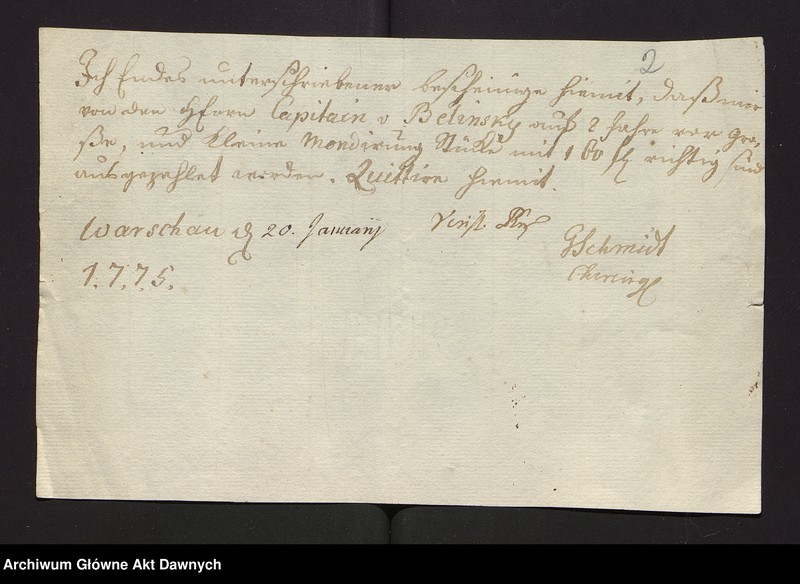 2
Ich Endes unterschriebener bescheinige hiemit, daß mir
von den Herrn Capitain v Belinsky auf 2 Jahre vor Gro,
ße, und Kleine Mondirung Stücke mit 160 fl richtig sind
ausgezahlet worden. Quittire hiemit.
Warschau d 20. January
GSchmidt
1.7.7.5.
Chirurg
Archiwum Główne Akt Dawnych